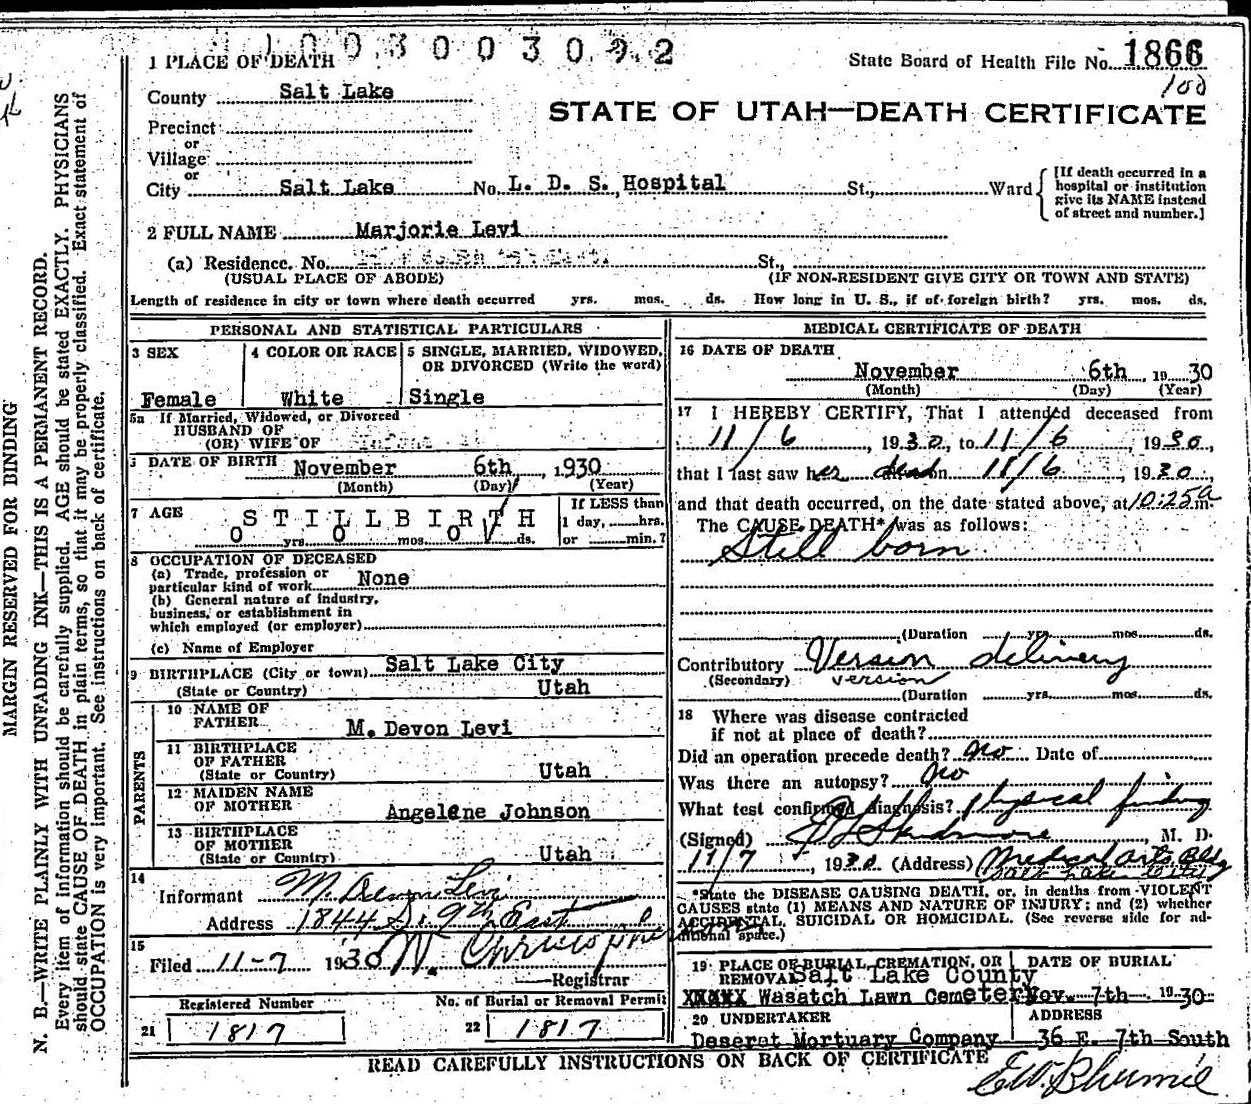 1003003092
1 PLACE OF DEATH
State Board of Health File No. 1866
100
County Salt Lake
STATE OF UTAH—DEATH CERTIFICATE
Precinct
or
Village
or
City Salt Lake No. L. D. S. Hospital St., Ward
[If death occurred in a hospital or institution give its NAME instead of street and number.]
2 FULL NAME Marjorie Levi
(a) Residence. No. St.,
(USUAL PLACE OF ABODE) (IF NON-RESIDENT GIVE CITY OR TOWN AND STATE)
Length of residence in city or town where death occurred yrs. mos. ds. How long in U. S., if of foreign birth? yrs. mos. ds.
PERSONAL AND STATISTICAL PARTICULARS
3 SEX
Female
4 COLOR OR RACE
White
5 SINGLE, MARRIED, WIDOWED,
OR DIVORCED (Write the word)
Single
5a If Married, Widowed, or Divorced
HUSBAND OF
(OR) WIFE OF
DATE OF BIRTH November 6th, 1930
(Month) (Day) (Year)
7 AGE
STILLBIRTH
0 yrs. 0 mos. 0 ds.
If LESS than
1 day, hrs.
or min.?
8 OCCUPATION OF DECEASED
(a) Trade, profession or
particular kind of work None
(b) General nature of industry,
business, or establishment in
which employed (or employer)
(c) Name of Employer
9 BIRTHPLACE (City or town) Salt Lake City
(State or Country) Utah
PARENTS
10 NAME OF
FATHER M. Devon Levi
11 BIRTHPLACE
OF FATHER
(State or Country) Utah
12 MAIDEN NAME
OF MOTHER Angelene Johnson
13 BIRTHPLACE
OF MOTHER
(State or Country) Utah
14
Informant M. Devon Levi
Address 1844 So. 9th East
15
Filed 11-7 1930
Registrar
Registered Number
21 1817
No. of Burial or Removal Permit
22 1817
MEDICAL CERTIFICATE OF DEATH
16 DATE OF DEATH
November 6th, 1930
(Month) (Day) (Year)
17 I HEREBY CERTIFY, That I attended deceased from
11/6, 1930, to 11/6, 1930,
that I last saw her dead on 11/6, 1930,
and that death occurred, on the date stated above, at 10:25a m.
The CAUSE DEATH* was as follows:
Still born
(Duration yrs. mos. ds.
Contributory Version delivery
(Secondary) version
(Duration yrs. mos. ds.
18 Where was disease contracted
if not at place of death?
Did an operation precede death? no Date of
Was there an autopsy? no
What test confirmed diagnosis? physical finding
(Signed) Skidmore, M. D.
11/7, 1930 (Address) Medical Arts Bldg
Salt Lake City
*State the DISEASE CAUSING DEATH, or, in deaths from VIOLENT
CAUSES state (1) MEANS AND NATURE OF INJURY; and (2) whether
ACCIDENTAL, SUICIDAL OR HOMICIDAL. (See reverse side for ad-
ditional space.)
19 PLACE OF BURIAL, CREMATION, OR
REMOVAL Salt Lake County
XXXXX Wasatch Lawn Cemetery
DATE OF BURIAL
Nov. 7th 1930
20 UNDERTAKER
Deseret Mortuary Company
ADDRESS
36 E. 7th South
READ CAREFULLY INSTRUCTIONS ON BACK OF CERTIFICATE
MARGIN RESERVED FOR BINDING
N. B.—WRITE PLAINLY WITH UNFADING INK—THIS IS A PERMANENT RECORD.
Every item of information should be carefully supplied. AGE should be stated EXACTLY. PHYSICIANS
should state CAUSE OF DEATH in plain terms, so that it may be properly classified. Exact statement of
OCCUPATION is very important. See instructions on back of certificate.